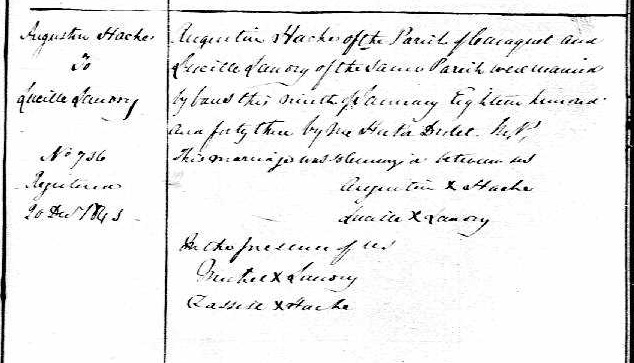 Augustin Hache
To
Lucille Lanory
No 736
Registered
20 Decr 1843
Augustin Hache of the Parish of Caraquet and
Lucille Lanory of the same Parish were married
by bans this ninth of January Eighteen hundred
and forty three by me M.P.
This marriage was between us
Augustin X Hache
Lucille X Lanory
In the presence of us
Michel X Lanory
X Hache